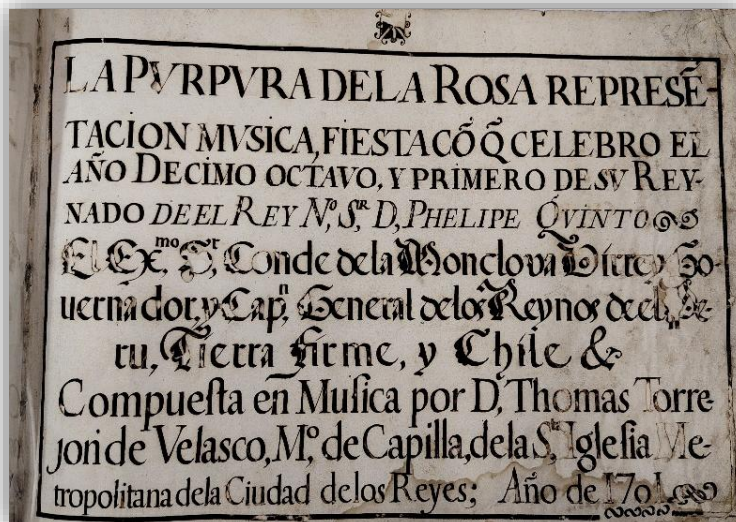 LA PVRPVRA DE LA ROSA REPRESẼ-
TACION MVSICA, FIESTA CÕ Q̃ CELEBRO EL
AÑO DECIMO OCTAVO, Y PRIMERO DE SV REY-
NADO DE EL REY Nº, Sᴿ, D, PHELIPE QVINTO
El Exᵐᵒ, Sʳ, Conde dela Monclova Virrey Go-
uernador, y Capⁿ, General delos Reynos deel Pe-
ru, Tierra firme, y Chile &
Compuesta en Musica por D, Thomas Torre-
jon de Velasco, Mº, de Capilla, dela Sᵗᵃ Iglesia Me-
tropolitana dela Ciudad delos Reyes; Año de 1701